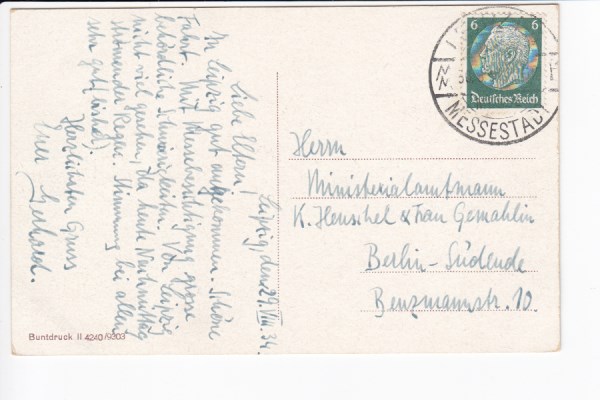 Leipzig, den 29. VIII. 34.
Liebe Eltern!
In Leipzig gut angekommen. Schöne
Fahrt. Mit Messebesichtigung grosse
behördliche Schwierigkeiten. Von Leipzig
nicht viel gesehen, da heute Nachmittag
strömender Regen. Stimmung bei allen
sehr gut (bisher).
Herzlichsten Gruss
Euer Gerhard.
Buntdruck II 4240/9203
6 6
Deutsches Reich
MESSESTAD
Herrn
Ministerialamtmann
K. Henschel & Frau Gemahlin
Berlin-Südende
Benzmannstr. 10.